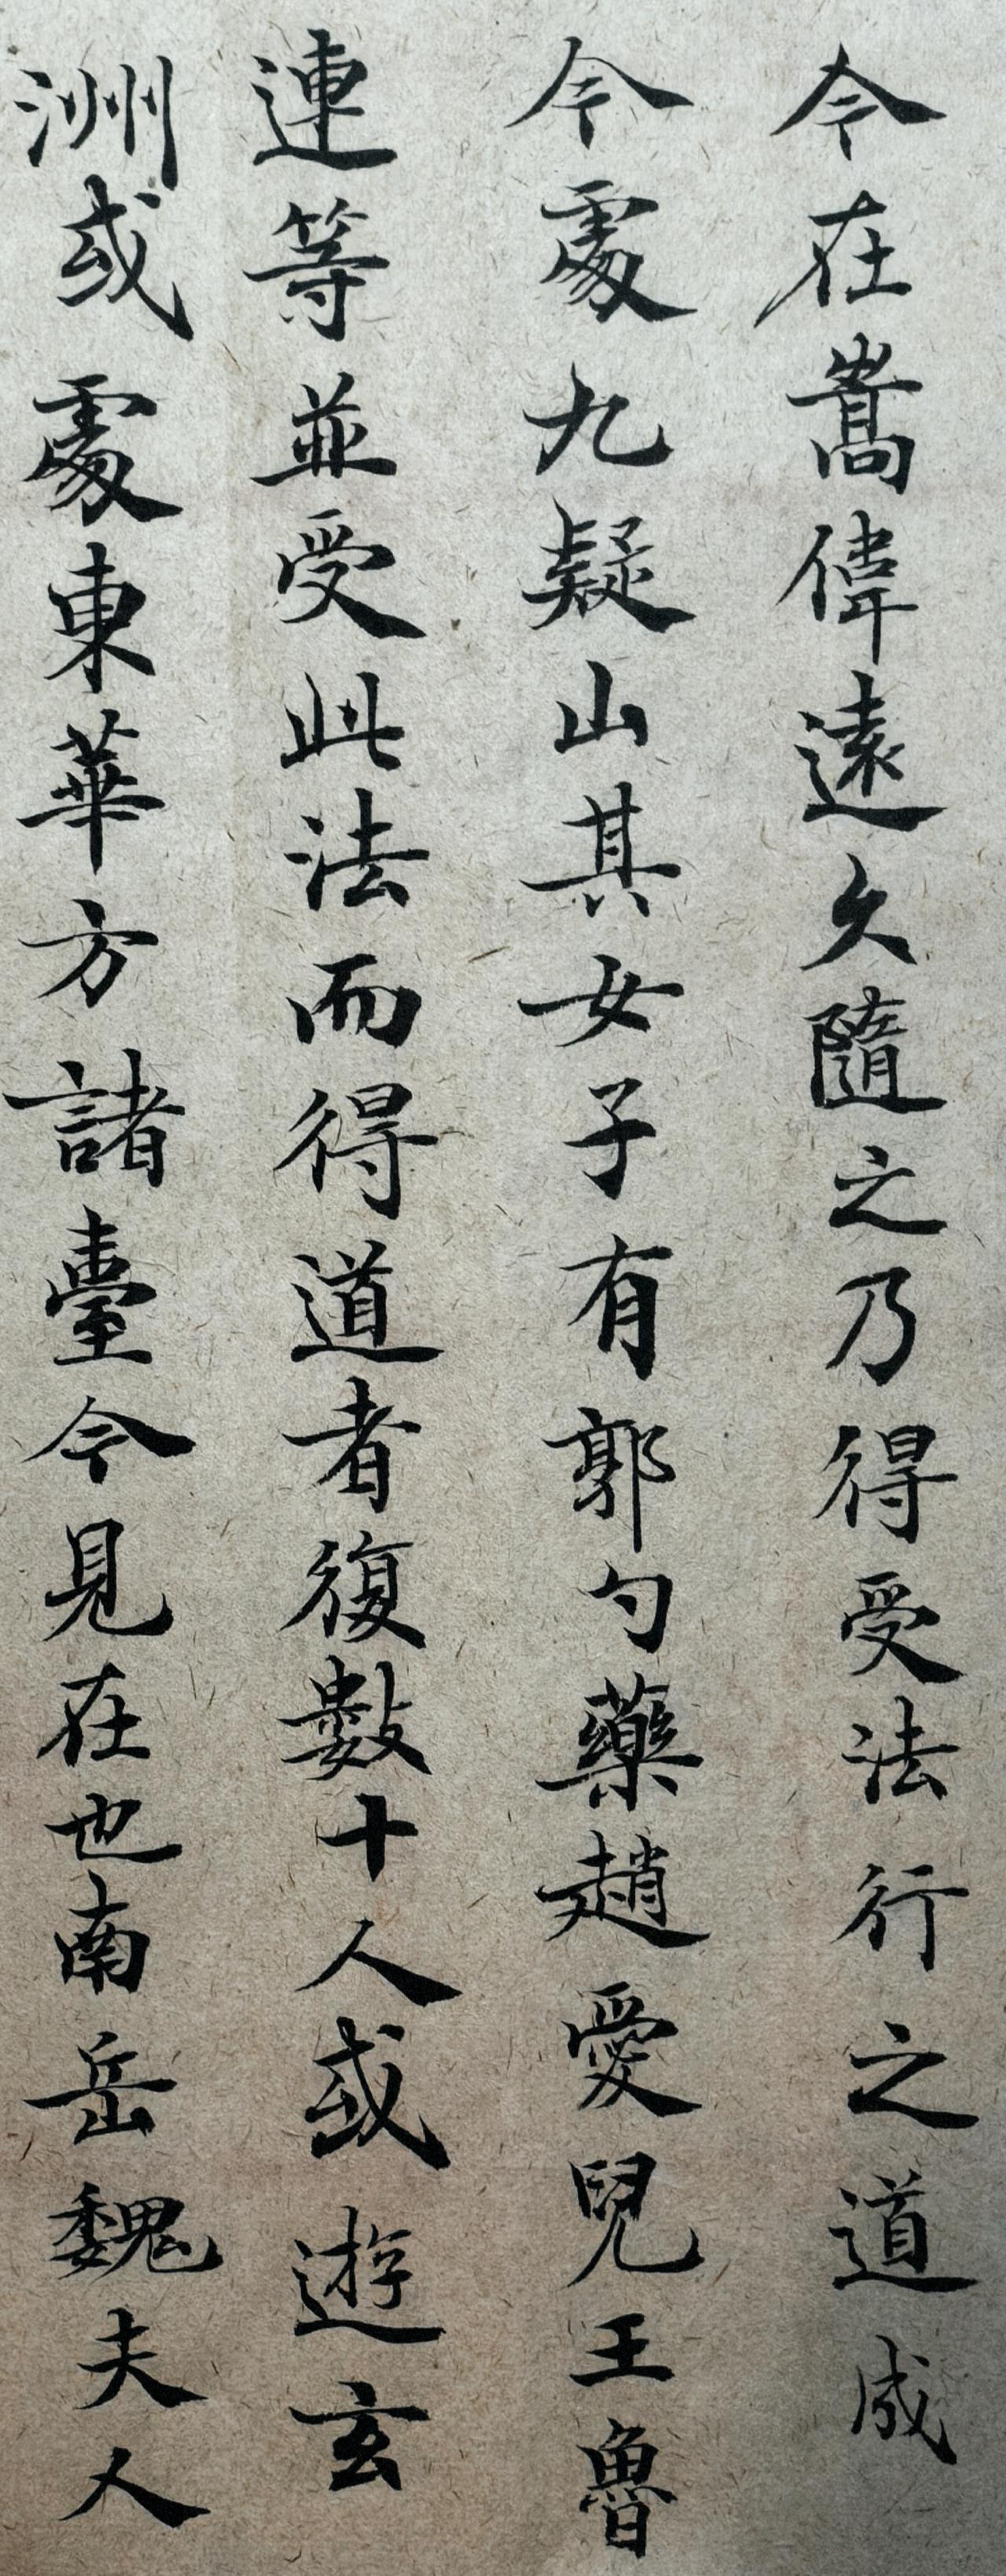 今在嵩偉遠久隨之乃得受法行之道成
今處九疑山其女子有郭勺藥趙愛兒王魯
連等並受此法而得道者復數十人或遊玄
洲或處東華方諸臺今見在也南岳魏夫人